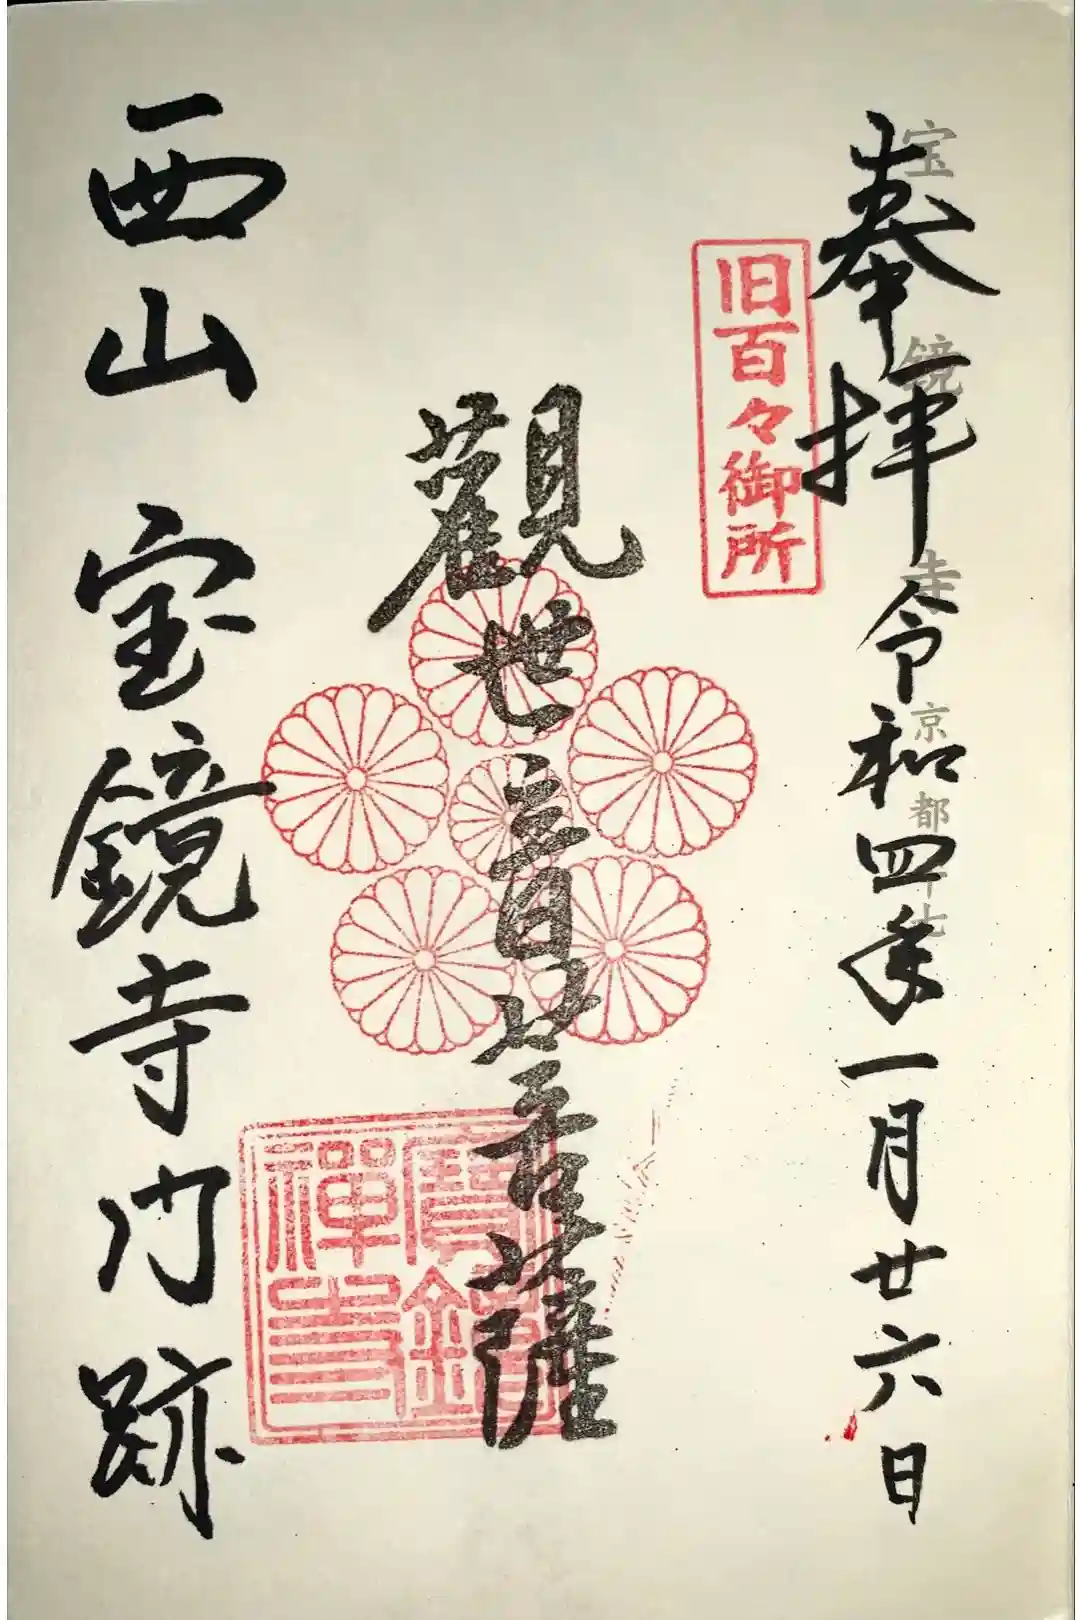 奉拝 令和四年一月廿六日
宝鏡寺 京都
旧百々御所
觀世音菩薩
寶鏡禅寺
西山 宝鏡寺門跡